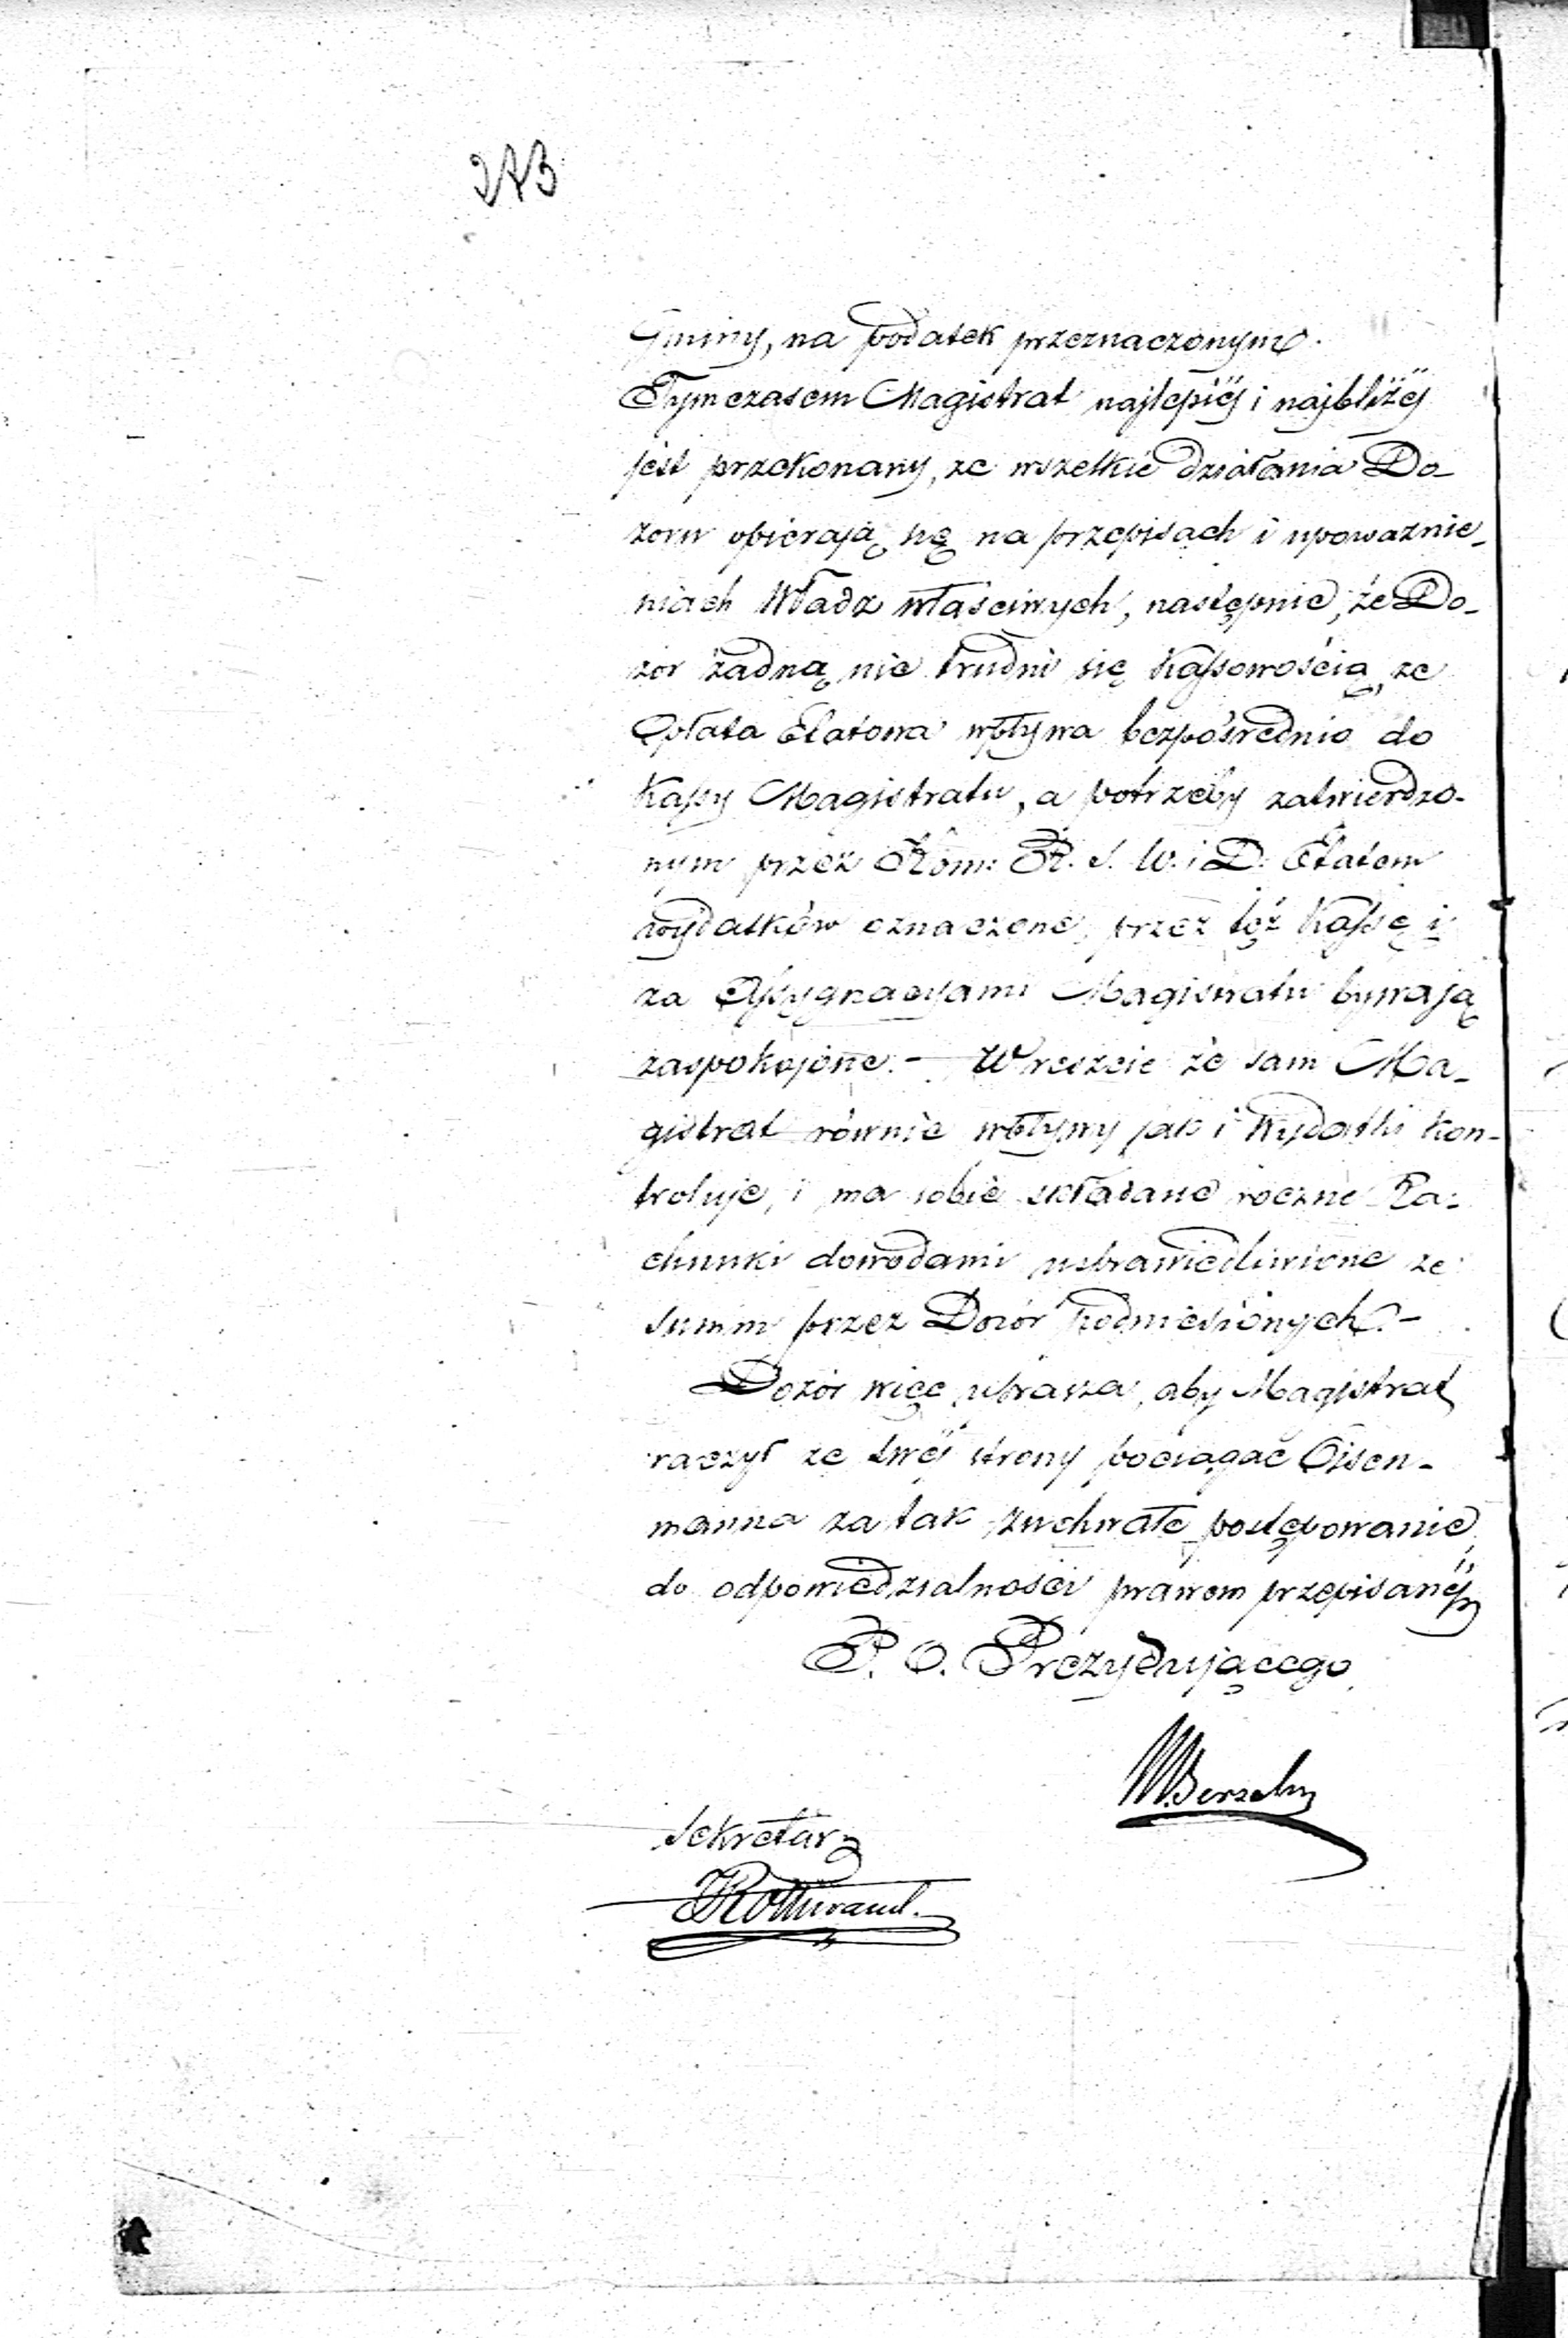 273
Gminy, na podatek przeznaczonym.
Tymczasem Magistrat najlepiéj i najbliżéj
jest przekonany, że wszelkie działania Do-
zoru opierają się na przepisach i upoważnie-
niach Władz właściwych, następnie, że Do-
zór żadną nie trudni się Kassowością, że
Opłata Etatowa wpływa bezpośrednio do
Kassy Magistratu, a potrzeby zatwierdzo-
nym przez Kom: R. S. W. i D. Etatem
wydatków oznaczone, przez tęż Kassę i
za Assygnacyami Magistratu bywają
zaspokojone. - Wreszcie że sam Ma-
gistrat równie wpływy jak i Wydatki kon-
troluje, i ma sobie składane roczne Ra-
chunki dowodami usprawiedliwione ze
summ przez Dozór podniesionych. -
Dozór więc uprasza, aby Magistrat
raczył ze swéj strony pociągać Eisen-
manna za tak zuchwałe postępowanie,
do odpowiedzialności prawem przepisanéj
P. O. Prezydującego
Sekretarz